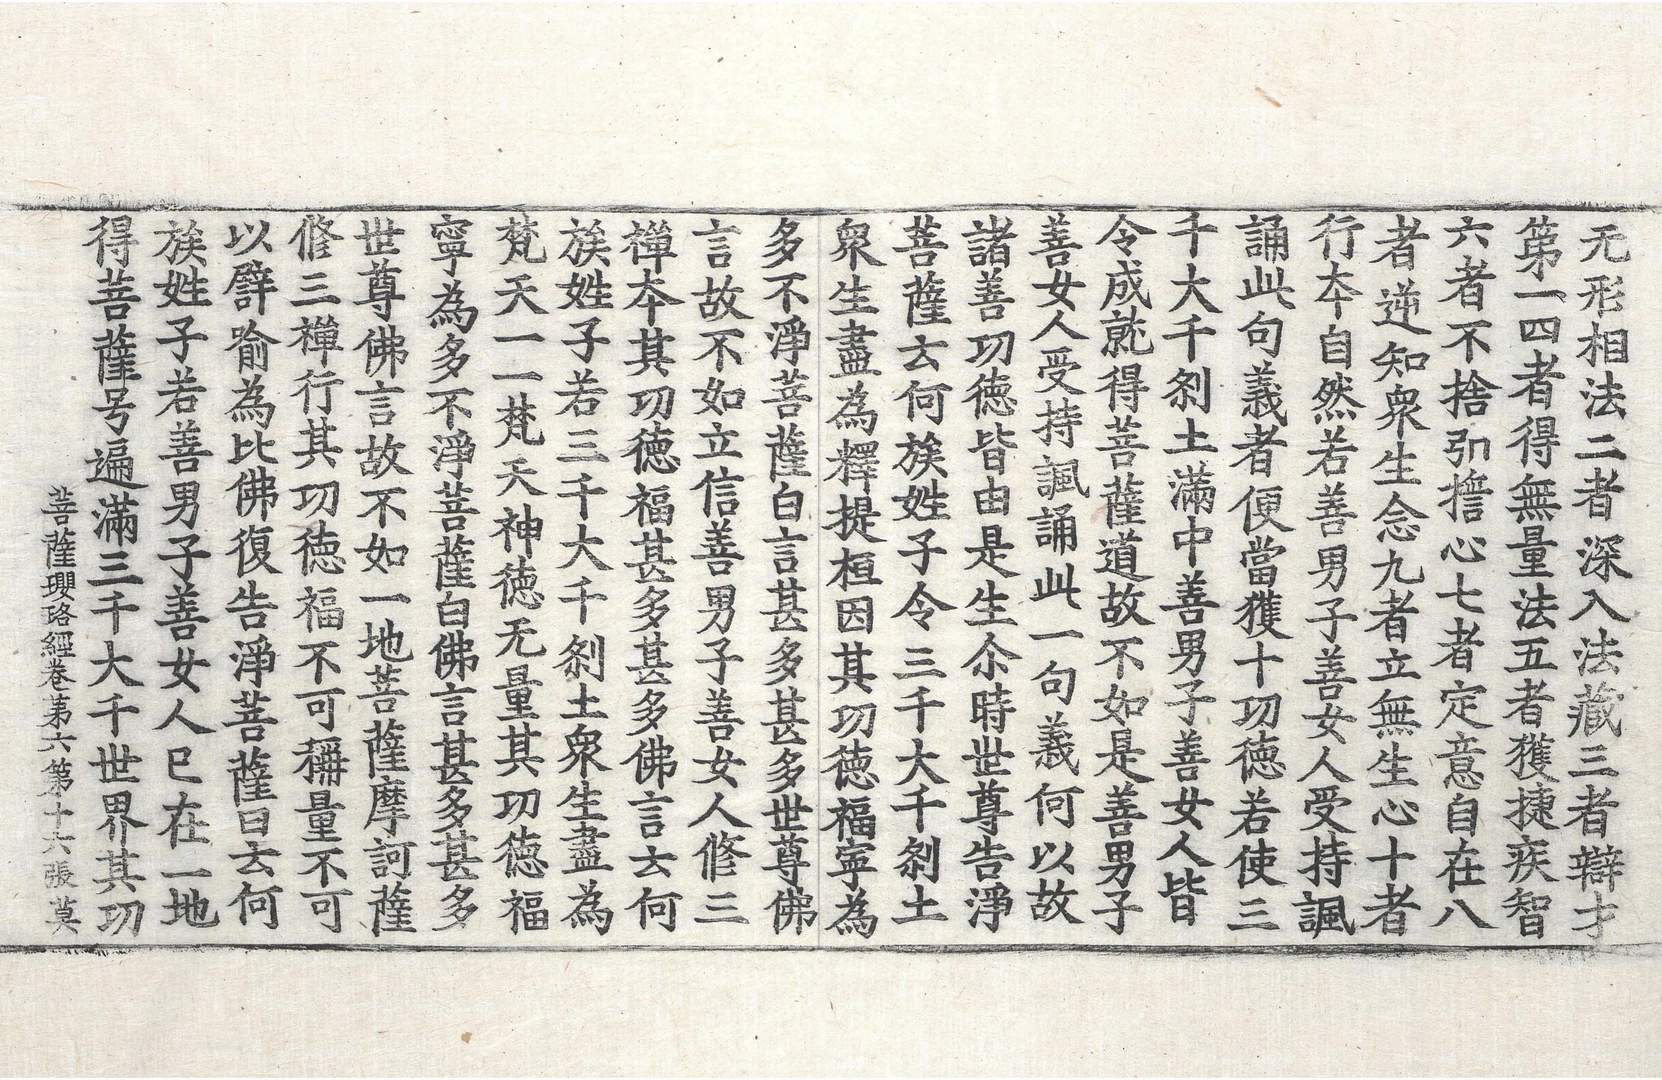 无形相法二者深入法藏三者辯才
第一四者得無量法五者獲捷疾智
六者不捨弘誓心七者定意自在八
者逆知衆生念九者立無生心十者
行本自然若善男子善女人受持諷
誦此句義者便當獲十功徳若使三
千大千刹土滿中善男子善女人皆
令成就得菩薩道故不如是善男子
善女人受持諷誦此一句義何以故
諸善功徳皆由是生尒時世尊告淨
菩薩云何族姓子令三千大千刹土
衆生盡為釋提桓因其功徳福寧為
多不淨菩薩白言甚多甚多世尊佛
言故不如立信善男子善女人修三
禪本其功徳福甚多甚多佛言云何
族姓子若三千大千刹土衆生盡為
梵天一一梵天神徳无量其功徳福
寧為多不淨菩薩白佛言甚多甚多
世尊佛言故不如一地菩薩摩訶薩
修三禪行其功徳福不可稱量不可
以譬喻為比佛復告淨菩薩曰云何
族姓子若善男子善女人已在一地
得菩薩号遍滿三千大千世界其功
菩薩瓔珞經卷第六第十六張莫